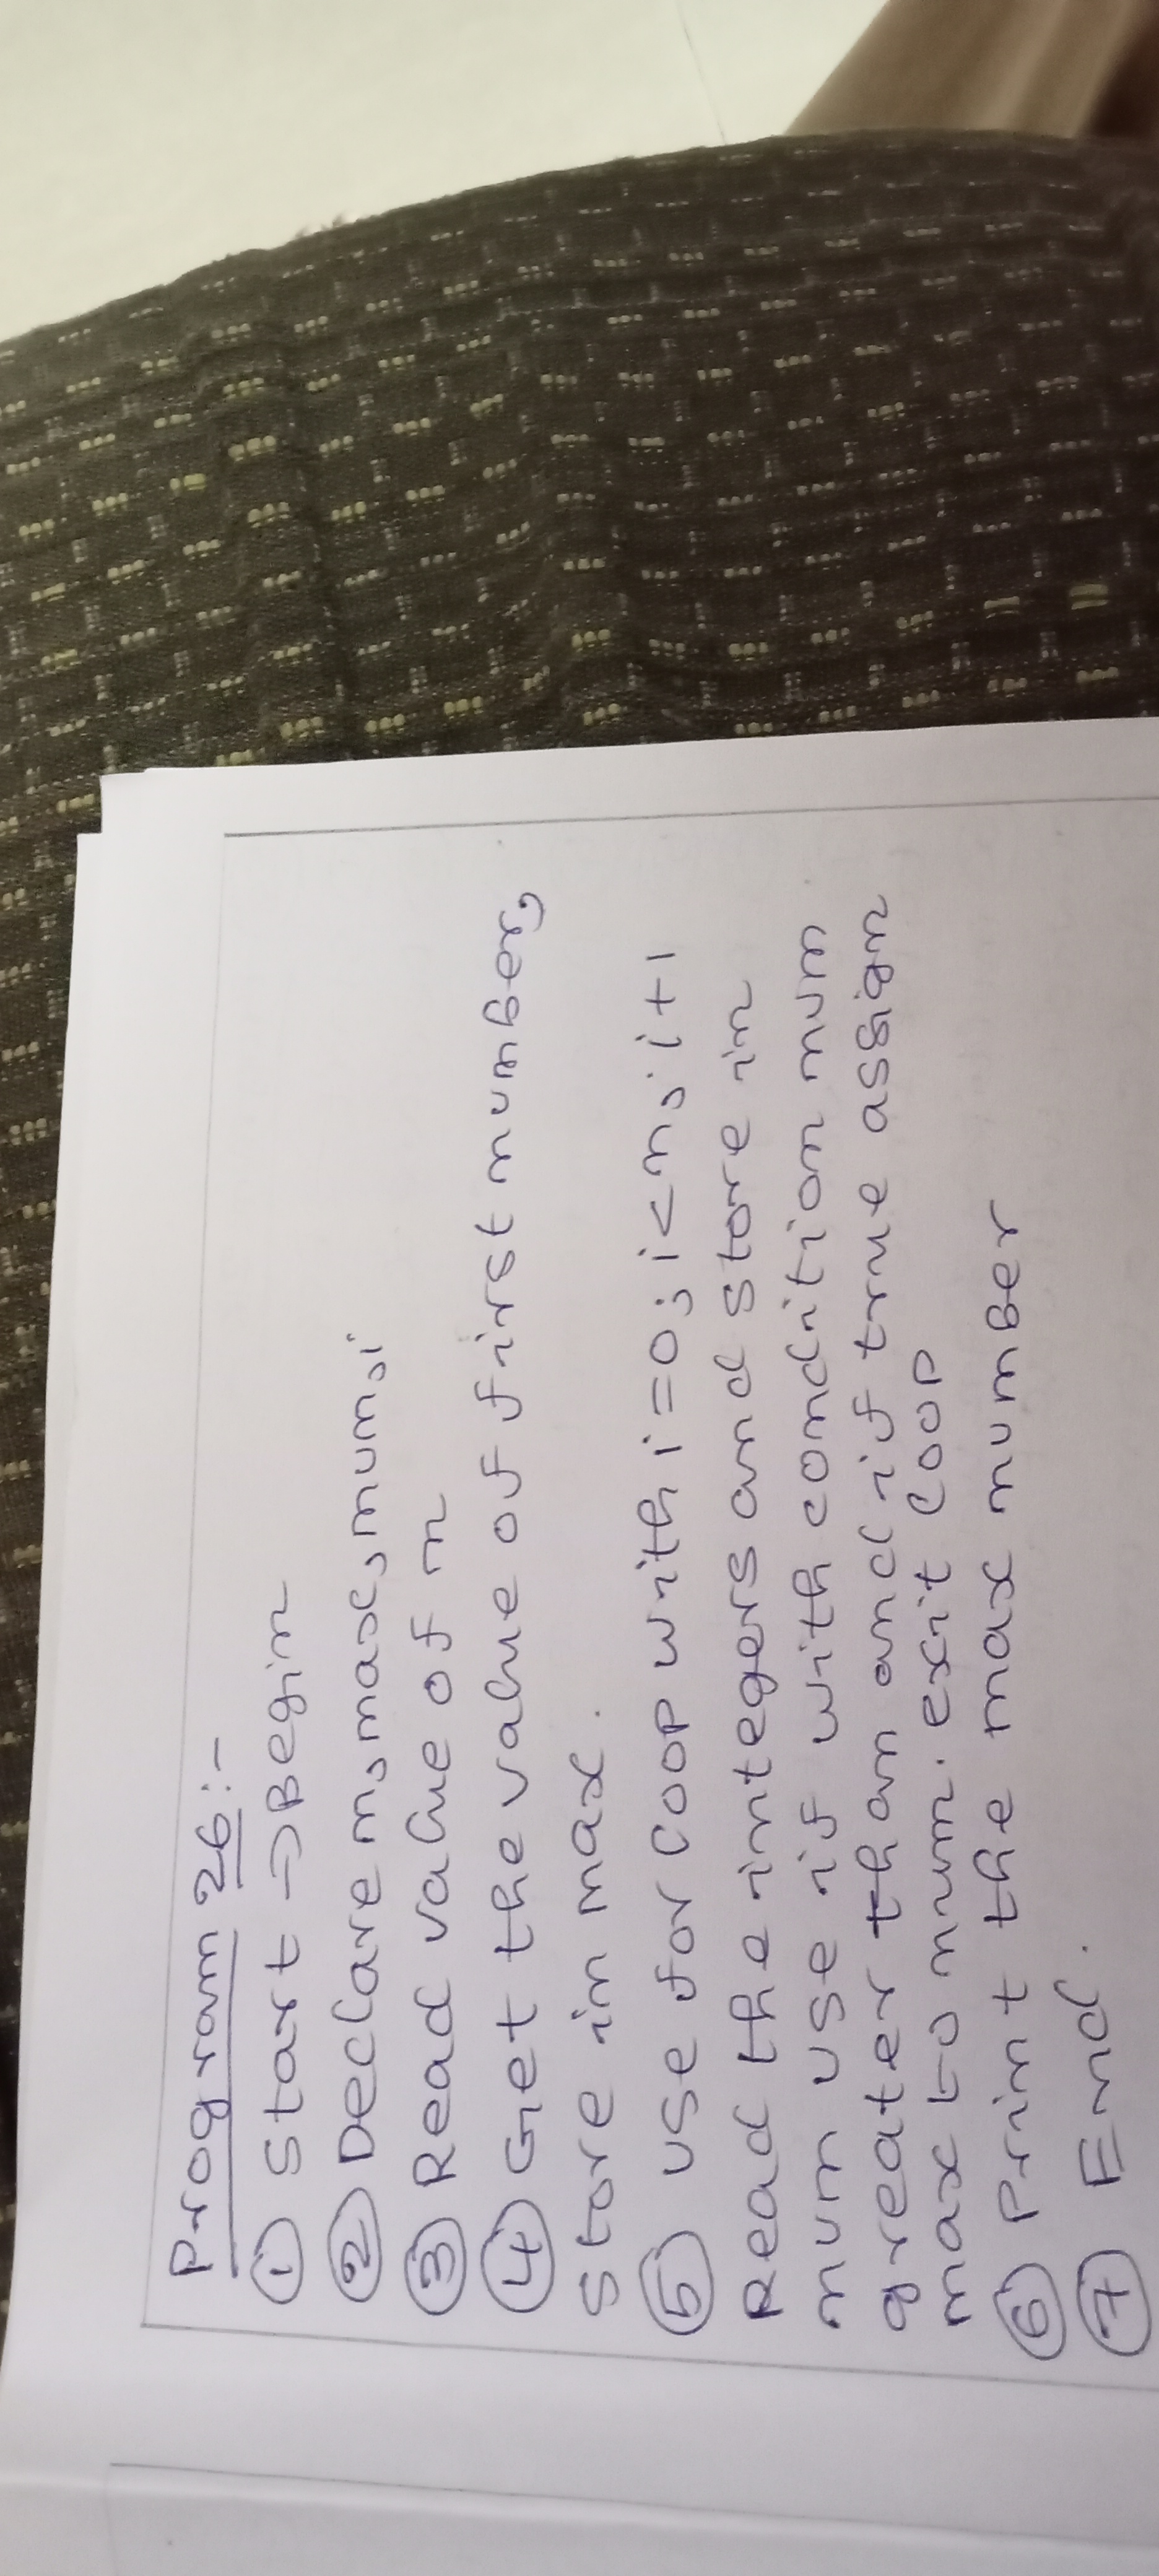 Program 26:-
① Start → Begin
② Declare n, max, num, i
③ Read value of n
④ Get the value of first number,
store in max.
⑤ use for loop with i=0; i<n; i+1
Read the integers and store in
num use if with condition num
greater than and if true assign
max to num. exit loop
⑥ Print the max number
⑦ End.